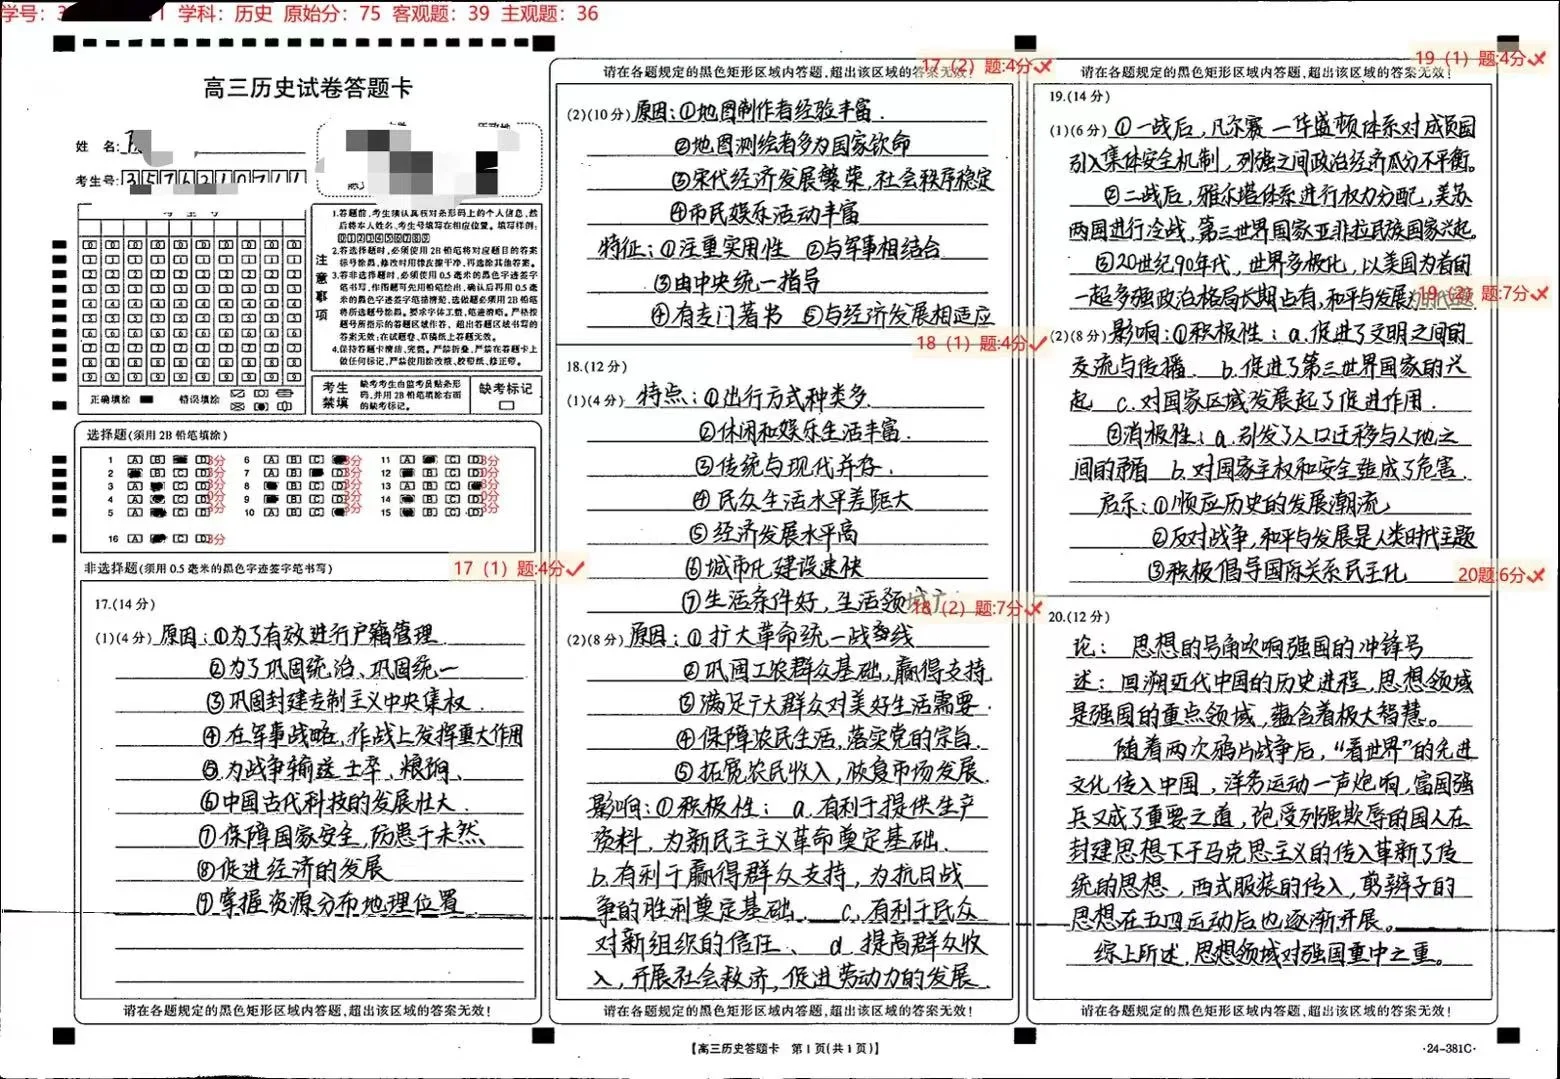 学号：3 1 学科：历史 原始分：75 客观题：39 主观题：36
高三历史试卷答题卡
姓 名：
考生号：
注意事项
1.答题前,考生须认真核对条形码上的个人信息,然
后将本人姓名、考生号填写在相应位置。填写样例:
0123456789
2.答选择题时,必须使用2B铅笔将对应题目的答案
标号涂黑,修改时用橡皮擦干净,再选涂其他答案。
3.答非选择题时,必须使用0.5毫米的黑色字迹签字
笔书写,作图题可先用铅笔绘出,确认后再用0.5毫
米的黑色字迹签字笔描清楚,选做题必须用2B铅笔
将所选题号涂黑。要求字体工整,笔迹清晰。严格按
题号所指示的答题区域作答,超出答题区域书写的
答案无效;在试题卷、草稿纸上答题无效。
4.保持答题卡清洁、完整。严禁折叠,严禁在答题卡上
做任何标记,严禁使用涂改液、胶带纸、修正带。
正确填涂 错误填涂
考生禁填
缺考考生由监考员贴条形
码,并用2B铅笔填涂右面
的缺考标记。
缺考标记
选择题(须用2B铅笔填涂)
1 6 11
2 7 12
3 8 13
4 9 14
5 10 15
16
非选择题(须用0.5毫米的黑色字迹签字笔书写)
17（1）题:4分
17.(14分)
(1)(4分) 原因:①为了有效进行户籍管理
②为了巩固统治、巩固统一
③巩固封建专制主义中央集权
④在军事战略,作战上发挥重大作用
⑤为战争输送士卒、粮饷、
⑥中国古代科技的发展壮大.
⑦保障国家安全,防患于未然
⑧促进经济的发展
⑨掌握资源分布地理位置
请在各题规定的黑色矩形区域内答题,超出该区域的答案无效!
请在各题规定的黑色矩形区域内答题,超出该区域的答案无效!
17（2）题:4分
(2)(10分) 原因:①地图制作者经验丰富.
②地图测绘者多为国家钦命
③宋代经济发展繁荣,社会秩序稳定
④市民娱乐活动丰富
特征:①注重实用性 ②与军事相结合
③由中央统一指导
④有专门著书 ⑤与经济发展相适应
18（1）题:4分
18.(12分)
(1)(4分) 特点:①出行方式种类多.
②休闲和娱乐生活丰富.
③传统与现代并存.
④民众生活水平差距大
⑤经济发展水平高
⑥城市化建设速快
⑦生活条件好,生活领域广
18（2）题:7分
(2)(8分) 原因:①扩大革命统一战线
②巩固工农群众基础,赢得支持.
③满足广大群众对美好生活需要.
④保障农民生活,落实党的宗旨.
⑤拓宽农民收入,恢复市场发展.
影响:①积极性: a.有利于提供生产
资料,为新民主主义革命奠定基础.
b.有利于赢得群众支持,为抗日战
争的胜利奠定基础. c.有利于民众
对新组织的信任、 d.提高群众收
入,开展社会救济,促进劳动力的发展.
请在各题规定的黑色矩形区域内答题,超出该区域的答案无效!
【高三历史答题卡 第1页(共1页)】
请在各题规定的黑色矩形区域内答题,超出该区域的答案无效!
19（1）题:4分
19.(14分)
(1)(6分) ①一战后,凡尔赛一华盛顿体系对成员国
引入集体安全机制,列强之间政治经济瓜分不平衡。
②二战后,雅尔塔体系进行权力分配,美苏
两国进行冷战,第三世界国家亚非拉民族国家兴起。
③20世纪90年代,世界多极化,以美国为首的
一超多强政治格局长期占有,和平与发展为时代主题
19（2）题:7分
(2)(8分) 影响:①积极性: a.促进了文明之间的
交流与传播. b.促进了第三世界国家的兴
起 c.对国家区域发展起了促进作用.
②消极性: a.引发了人口迁移与人地之
间的矛盾 b.对国家主权和安全造成了危害.
启示:①顺应历史的发展潮流,
②反对战争,和平与发展是人类时代主题
③积极倡导国际关系民主化
20题:6分
20.(12分)
论: 思想的号角吹响强国的冲锋号
述:回溯近代中国的历史进程,思想领域
是强国的重点领域,蕴含着极大智慧。
随着两次鸦片战争后,“看世界”的先进
文化传入中国,洋务运动一声炮响,富国强
兵又成了重要之道,饱受列强欺辱的国人在
封建思想下于马克思主义的传入革新了传
统的思想,西式服装的传入,剪辫子的
思想在五四运动后也逐渐开展。
综上所述,思想领域对强国重中之重。
请在各题规定的黑色矩形区域内答题,超出该区域的答案无效!
·24-381C·